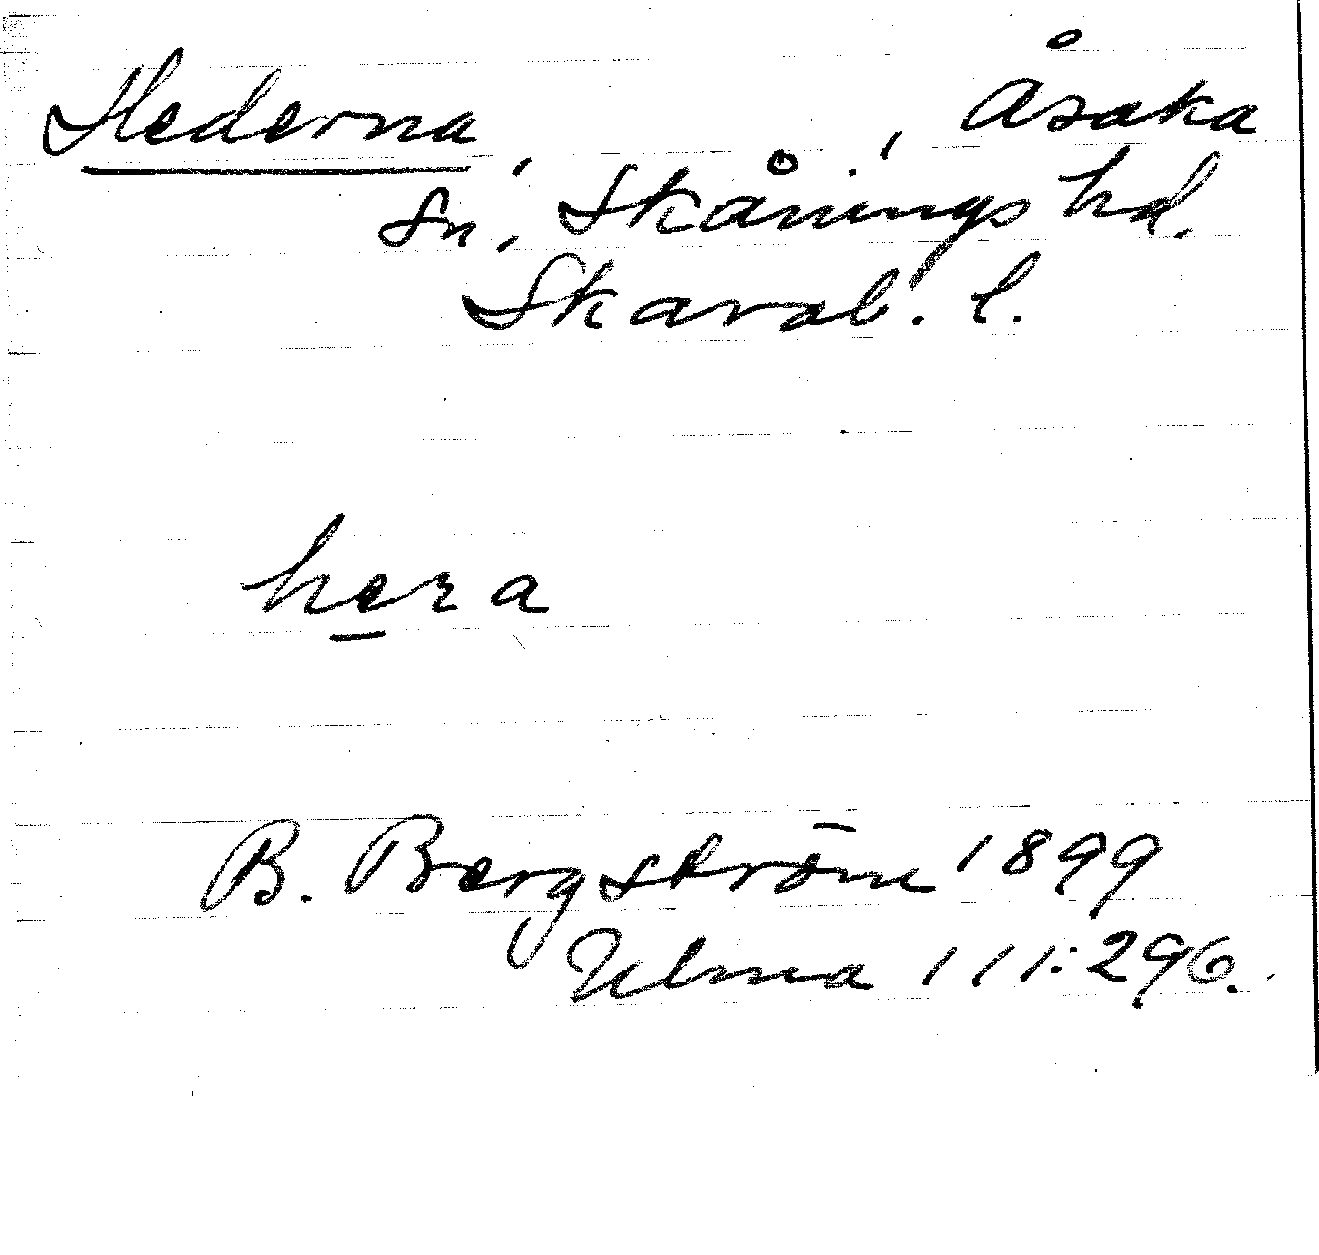 Hederna, Åsaka
sn, Skånings hd.
Skarab. l.
hera
B. Bergström 1899
Ulma 111:296.